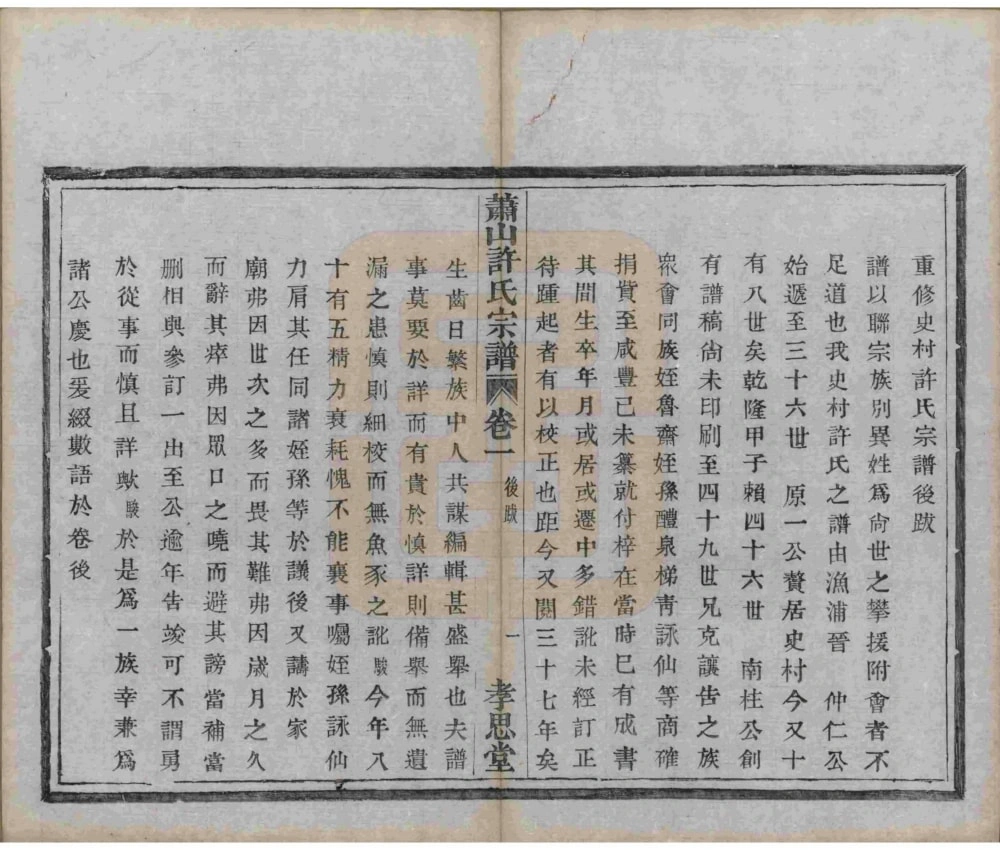 重修史村許氏宗譜後跋
譜以聯宗族別異姓爲尙世之攀援附會者不
足道也我史村許氏之譜由漁浦晉 仲仁公
始遞至三十六世 原一公贅居史村今又十
有八世矣乾隆甲子賴四十六世 南柱公創
有譜稿尙未印刷至四十九世兄克讓吿之族
衆會同族姪魯齋姪孫醴泉梯靑詠仙等商確
捐貲至咸豐己未纂就付梓在當時已有成書
其間生卒年月或居或遷中多錯訛未經訂正
待踵起者有以校正也距今又閱三十七年矣
蕭山許氏宗譜 卷一 後跋 一 孝思堂
生齒日繁族中人共謀編輯甚盛舉也夫譜
事莫要於詳而有貴於愼詳則備舉而無遺
漏之患愼則細校而無魚豕之訛駿今年八
十有五精力衰耗愧不能襄事囑姪孫詠仙
力肩其任同諸姪孫等於議後又禱於家
廟弗因世次之多而畏其難弗因歲月之久
而辭其瘁弗因眾口之曉而避其謗當補當
刪相與參訂一出至公逾年吿竣可不謂勇
於從事而愼且詳歟駿於是爲一族幸兼爲
諸公慶也爰綴數語於卷後